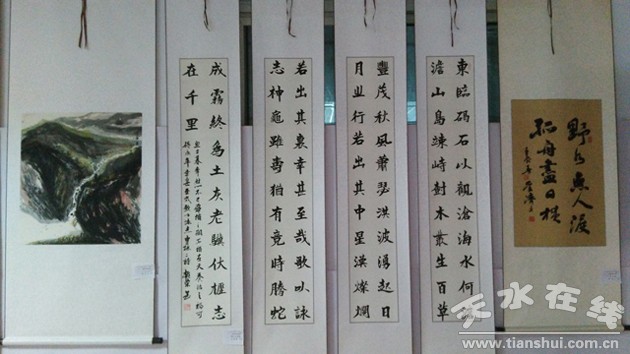 野水無人渡
孤舟盡日横
東臨碣石以觀滄海水何
澹山島竦峙樹木叢生百草
豐茂秋風蕭瑟洪波湧起日
月之行若出其中星漢燦爛
若出其裏幸甚至哉歌以詠
志神龜雖壽猶有竟時騰蛇
成霧終為土灰老驥伏櫪志
在千里
天水在线
www.tianshui.com.cn